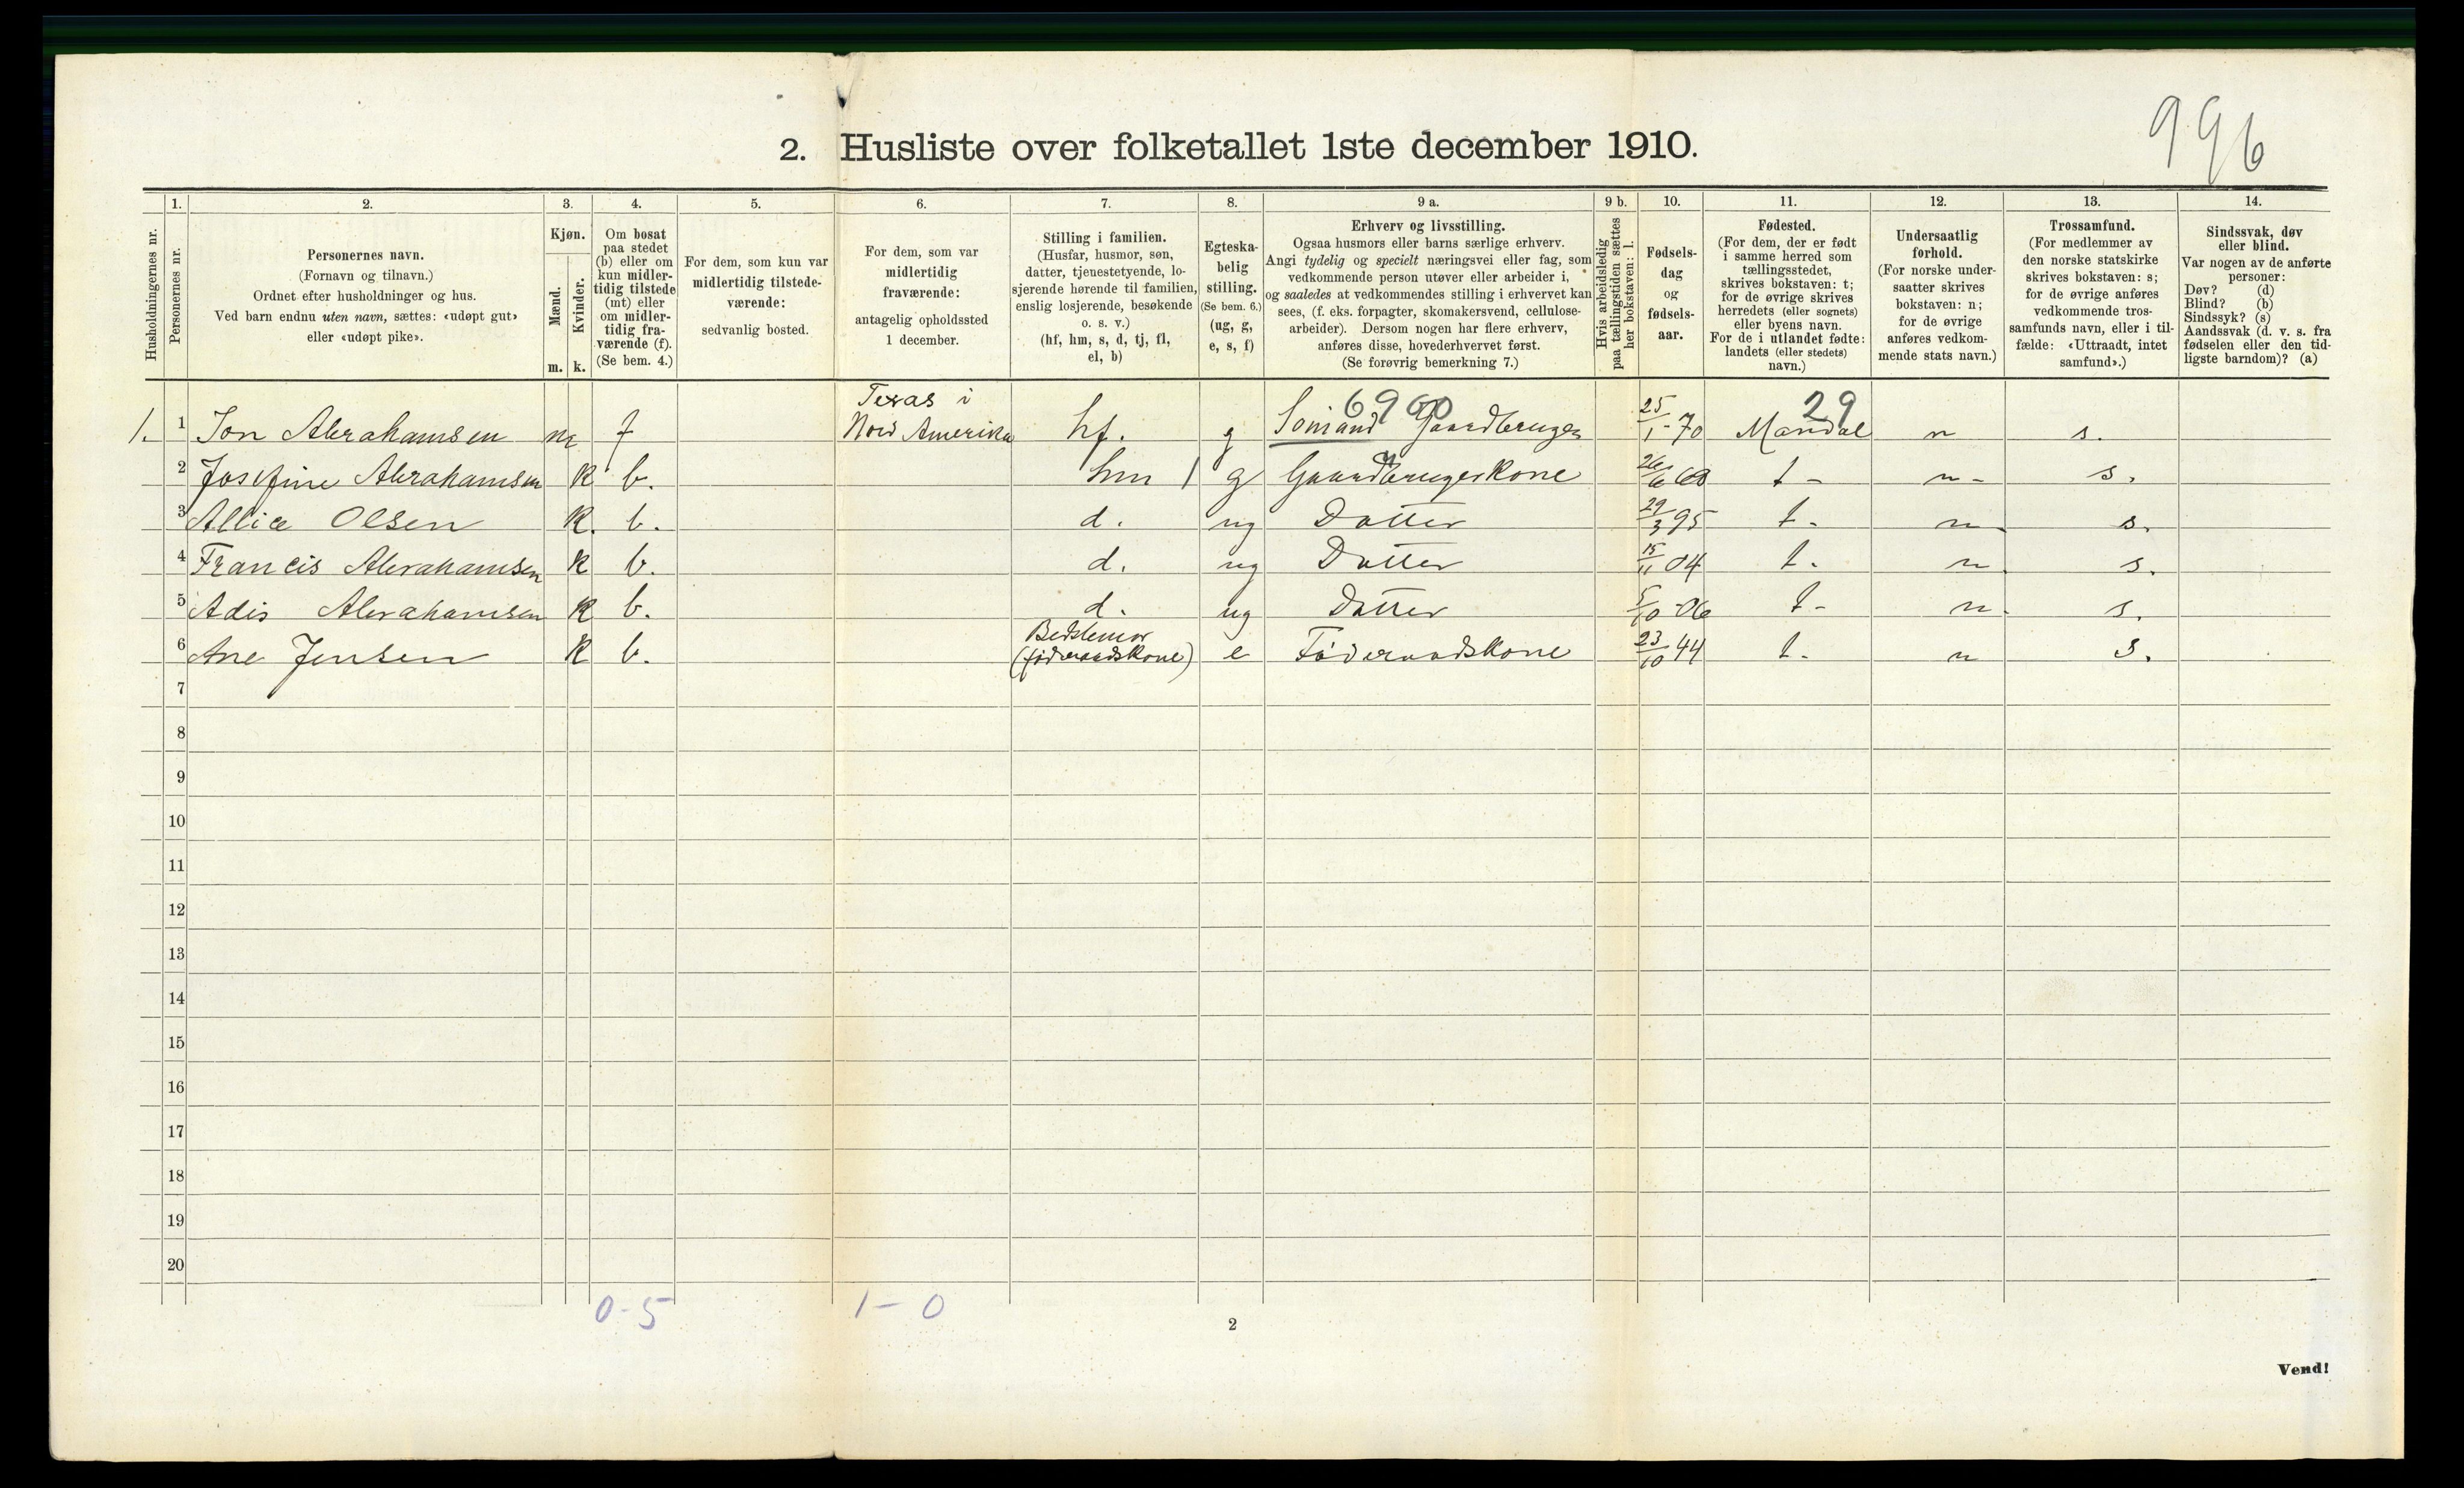 996
2. Husliste over folketallet 1ste december 1910.
Husholdningernes nr.
1. Personernes nr.
2. Personernes navn.
(Fornavn og tilnavn.)
Ordnet efter husholdninger og hus.
Ved barn endnu uten navn, sættes: «udøpt gut»
eller «udøpt pike».
3. Kjøn.
Mænd. Kvinder.
m. k.
4. Om bosat
paa stedet
(b) eller om
kun midler-
tidig tilstede
(mt) eller
om midler-
tidig fra-
værende (f).
(Se bem. 4.)
5. For dem, som kun var
midlertidig tilstede-
værende:
sedvanlig bosted.
6. For dem, som var
midlertidig
fraværende:
antagelig opholdssted
1 december.
7. Stilling i familien.
(Husfar, husmor, søn,
datter, tjenestetyende, lo-
sjerende hørende til familien,
enslig losjerende, besøkende
o. s. v.)
(hf, hm, s, d, tj, fl,
el, b)
8. Egteska-
belig
stilling.
(Se bem. 6.)
(ug, g,
e, s, f)
9 a. Erhverv og livsstilling.
Ogsaa husmors eller barns særlige erhverv.
Angi tydelig og specielt næringsvei eller fag, som
vedkommende person utøver eller arbeider i,
og saaledes at vedkommendes stilling i erhvervet kan
sees, (f. eks. forpagter, skomakersvend, cellulose-
arbeider). Dersom nogen har flere erhverv,
anføres disse, hovederhvervet først.
(Se forøvrig bemerkning 7.)
9 b. Hvis arbeidsledig
paa tællingstiden sættes
her bokstaven: l.
10. Fødsels-
dag
og
fødsels-
aar.
11. Fødested.
(For dem, der er født
i samme herred som
tællingsstedet,
skrives bokstaven: t;
for de øvrige skrives
herredets (eller sognets)
eller byens navn.
For de i utlandet fødte:
landets (eller stedets)
navn.)
12. Undersaatlig
forhold.
(For norske under-
saatter skrives
bokstaven: n;
for de øvrige
anføres vedkom-
mende stats navn.)
13. Trossamfund.
(For medlemmer av
den norske statskirke
skrives bokstaven: s;
for de øvrige anføres
vedkommende tros-
samfunds navn, eller i til-
fælde: «Uttraadt, intet
samfund».)
14. Sindssvak, døv
eller blind.
Var nogen av de anførte
personer:
Døv? (d)
Blind? (b)
Sindssyk? (s)
Aandssvak (d. v. s. fra
fødselen eller den tid-
ligste barndom)? (a)
Texas i 6960 29
1. 1 Jon Abrahamsen m f Nord Amerika hf. g Sømand Gaardbruger 25/1-70 Mandal n s.
2 Josefine Abrahamsen k b. hm g Gaardbrugerkone 26/6 68 t- n- s.
3 Allice Olsen k. b. d. ug Datter 29/3 95 t- n- s.
4 Francis Abrahamsen k b. d. ug Datter 15/11 04 t. n s.
5 Adis Abrahamsen k b. d. ug Datter 5/10 06 t- n- s.
Bedstemor
6 Ane Jensen k b. (føderaadskone) e Føderaadskone 23/10 44 t- n s.
7
8
9
10
11
12
13
14
15
16
17
18
19
20
0-5 1-0
2
Vend!